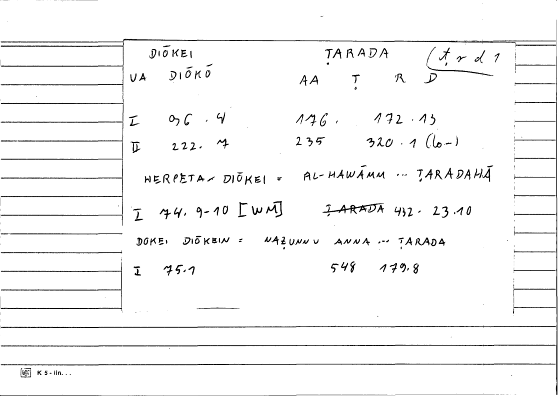 DIŌKEI ṬARADA (ṭ r d 1
UA DIŌKŌ AA Ṭ R D
I 96.4 176. 172.13
II 222.7 235 320.1 (lo-)
HERPETA DIŌKEI = AL-HAWĀMM ... ṬARADAHĀ
I 74.9-10 [WM] ṬARADA 432. 23.10
DOKEI DIŌKEIN = NAẒUNNU ANNA ... ṬARADA
I 75.1 548 179.8
K 5 - lin. . .